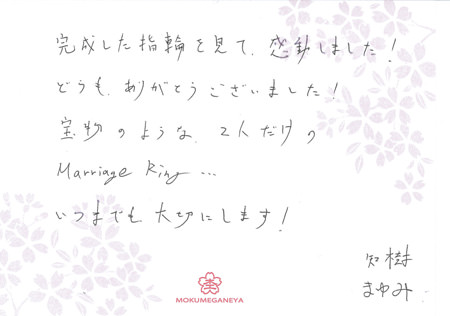 完成した指輪を見て、感動しました!
どうも、ありがとうございました!
宝物のような、2人だけの
Marriage Ring…
いつまでも、大切にします!
知樹
まゆみ
MOKUMEGANEYA